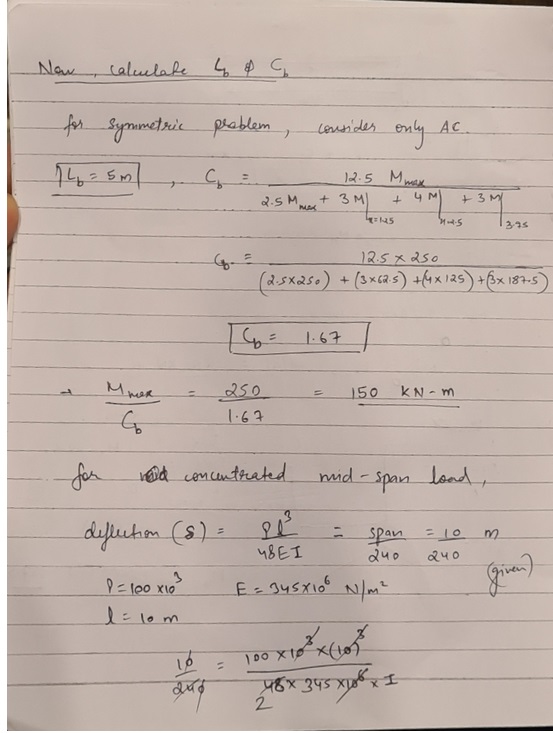 Now, calculate L_b & C_b
for symmetric problem, consider only AC.
L_b = 5m, C_b = 12.5 M_max / (2.5 M_max + 3M|_x=1.25 + 4M|_x=2.5 + 3M|_3.75)
C_b = 12.5 × 250 / ((2.5×250) + (3×62.5) + (4×125) + (3×187.5))
C_b = 1.67
→ M_max / C_b = 250 / 1.67 = 150 KN-m
for concentrated mid-span load,
deflection (δ) = Pl³ / 48EI = span / 240 = 10 / 240 m
(given)
P = 100 × 10³ E = 345×10⁶ N/m²
l = 10 m
10 / 240 = 100 × 10³ × (10)³ / 48 × 345 × 10⁶ × I
2